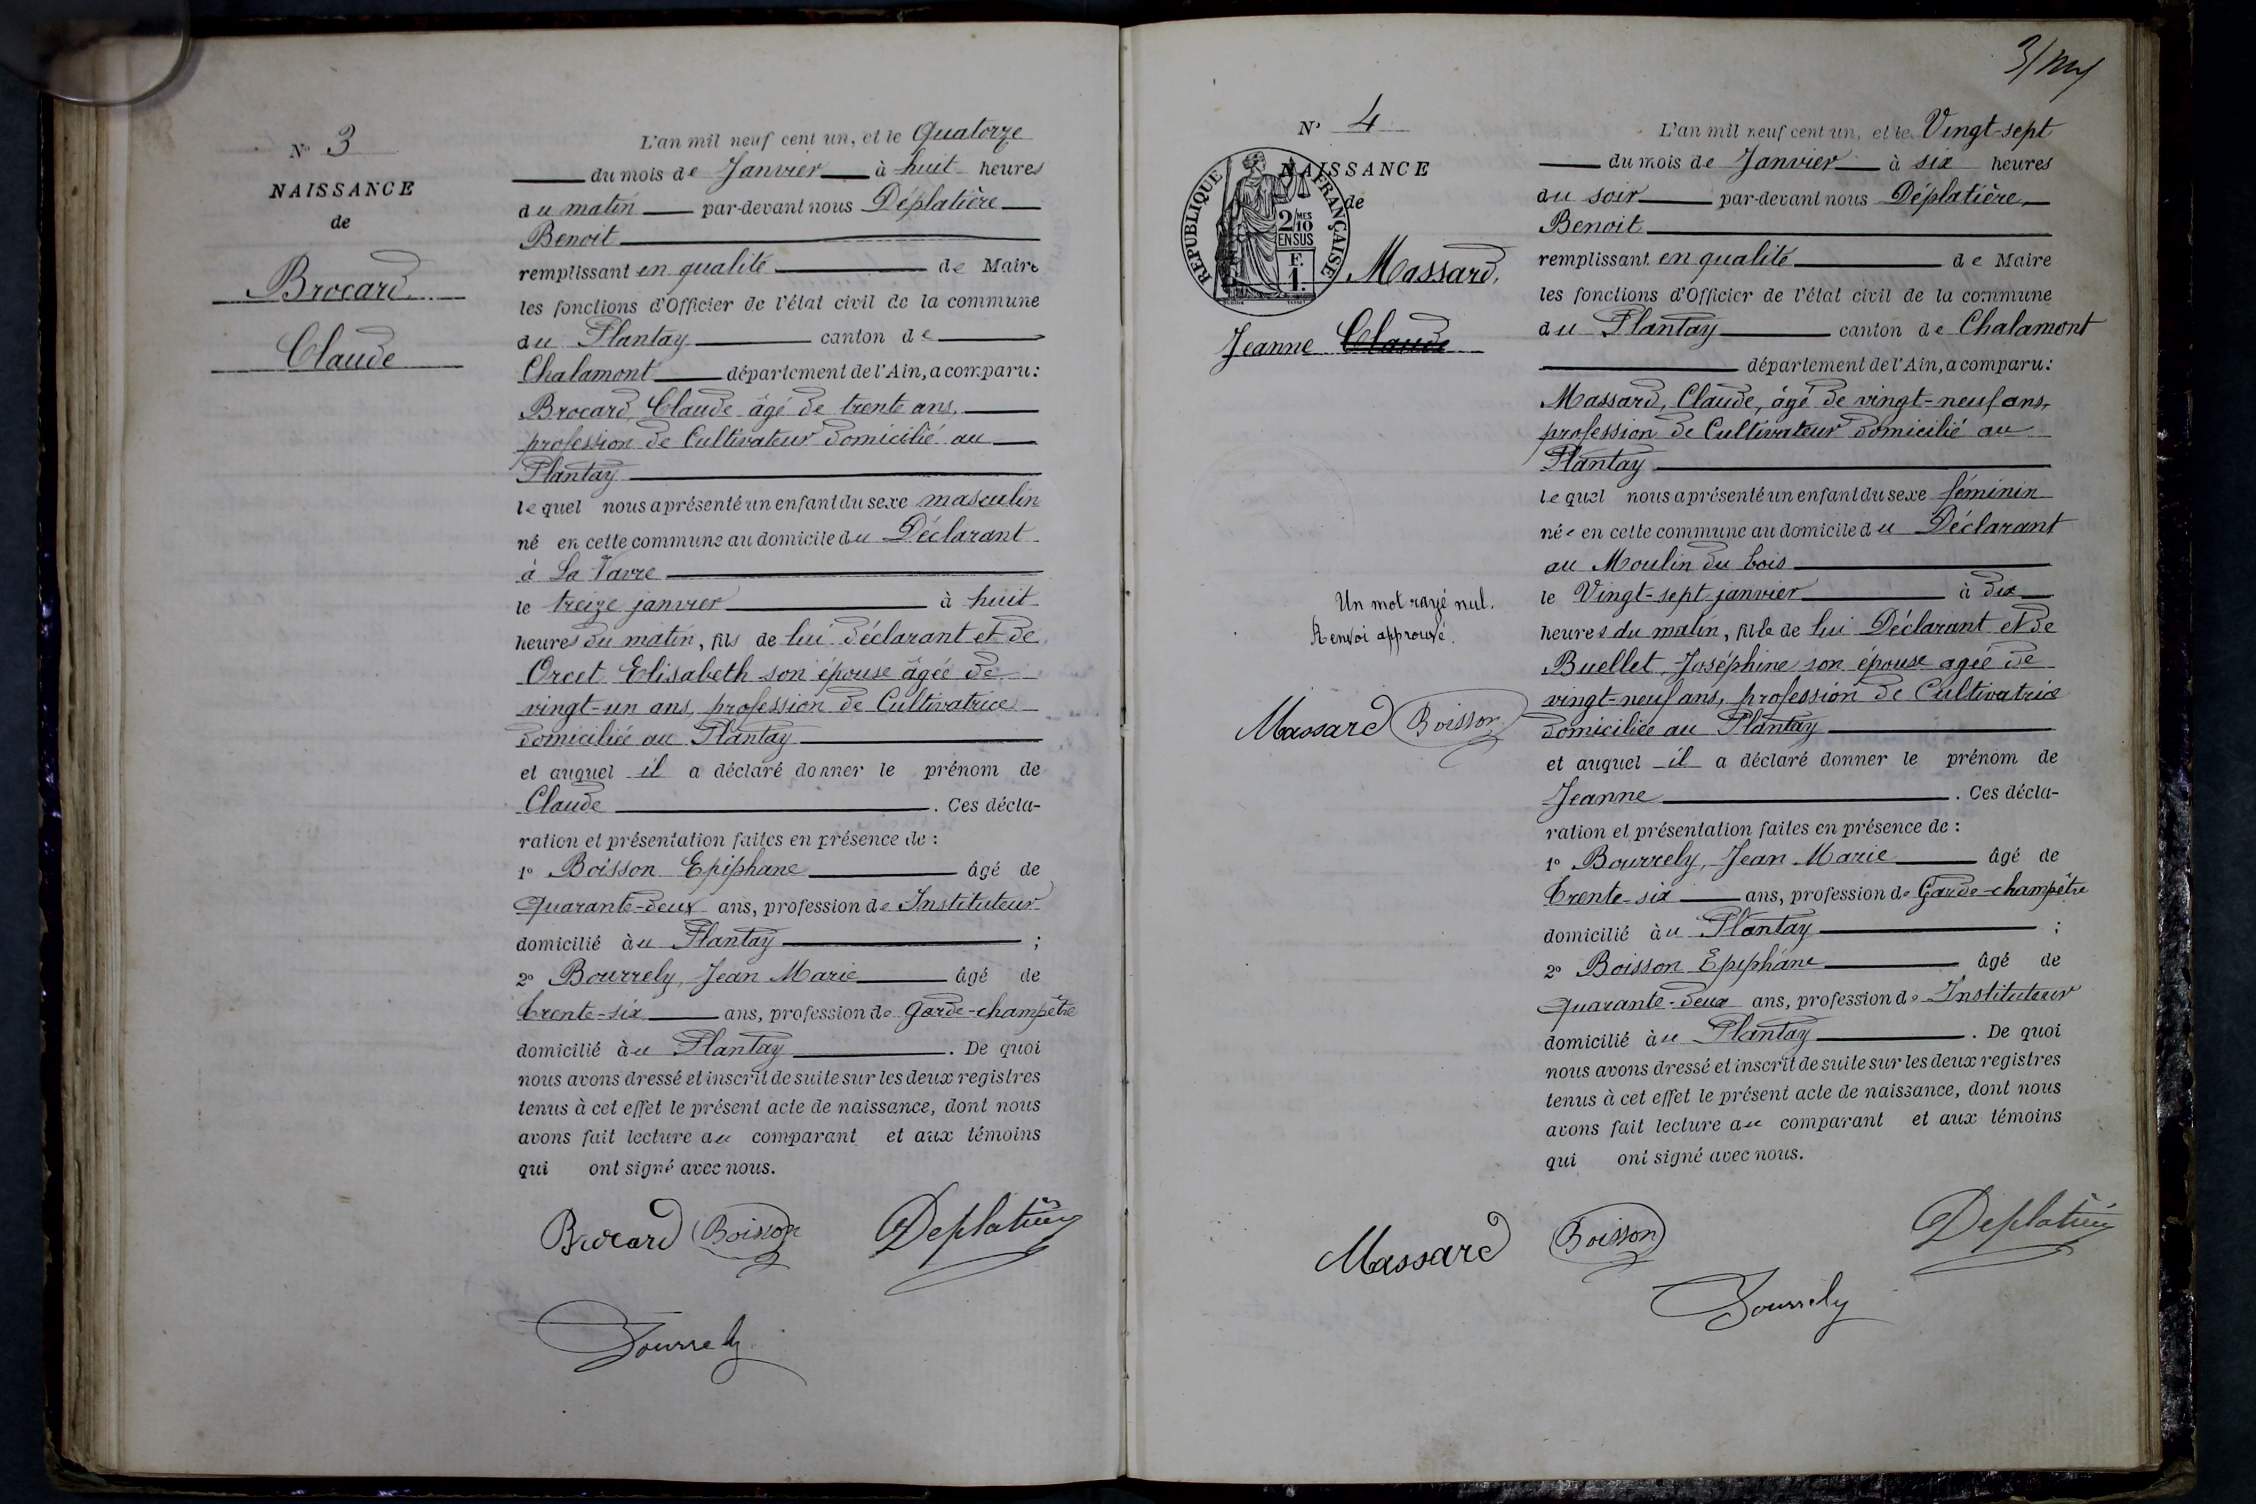 N° 3
NAISSANCE
de
Brocard
Claude
L'an mil neuf cent un, et le Quatorze
du mois de Janvier à huit heures
du matin par-devant nous Déplatière
Benoit
remplissant en qualité de Maire
les fonctions d'Officier de l'état civil de la commune
du Plantay canton de
Chalamont département de l'Ain, a comparu:
Brocard Claude âgé de trente ans,
profession de Cultivateur domicilié au
Plantay
lequel nous a présenté un enfant du sexe masculin
né en cette commune au domicile du Déclarant
à La Vavre
le treize janvier à huit
heures du matin, fils de lui déclarant et de
Orcet Elisabeth son épouse âgée de
vingt-un ans, profession de Cultivatrice
domiciliée au Plantay
et auquel il a déclaré donner le prénom de
Claude . Ces décla-
ration et présentation faites en présence de :
1° Boisson Epiphane âgé de
Quarante-deux ans, profession de Instituteur
domicilié àu Plantay ;
2° Bourrely, Jean Marie âgé de
trente-six ans, profession de garde-champêtre
domicilié àu Plantay . De quoi
nous avons dressé et inscrit de suite sur les deux registres
tenus à cet effet le présent acte de naissance, dont nous
avons fait lecture au comparant et aux témoins
qui ont signé avec nous.
Brocard Boisson Deplatière
Bourrely
N° 4
NAISSANCE
de
REPUBLIQUE FRANÇAISE
2/10 MES
EN SUS
F.
1.
Massard,
Jeanne Claude
Un mot rayé nul.
Renvoi approuvé.
Massard Boisson
L'an mil neuf cent un, et le Vingt-sept
du mois de Janvier à six heures
du soir par-devant nous Déplatière,
Benoit
remplissant en qualité de Maire
les fonctions d'Officier de l'état civil de la commune
du Plantay canton de Chalamont
département de l'Ain, a comparu:
Massard, Claude, âgé de vingt-neuf ans,
profession de Cultivateur domicilié au
Plantay
lequel nous a présenté un enfant du sexe féminin
née en cette commune au domicile du Déclarant
au Moulin du bois
le Vingt-sept janvier à dix
heures du matin, fille de lui Déclarant et de
Buellet, Joséphine son épouse agée de
vingt-neuf ans, profession de Cultivatrice
domiciliée au Plantay
et auquel il a déclaré donner le prénom de
Jeanne . Ces décla-
ration et présentation faites en présence de :
1° Bourrely, Jean Marie âgé de
trente-six ans, profession de Garde-champêtre
domicilié àu Plantay ;
2° Boisson Epiphane âgé de
quarante-deux ans, profession de Instituteur
domicilié àu Plantay . De quoi
nous avons dressé et inscrit de suite sur les deux registres
tenus à cet effet le présent acte de naissance, dont nous
avons fait lecture au comparant et aux témoins
qui ont signé avec nous.
Massard Boisson Deplatière
Bourrely